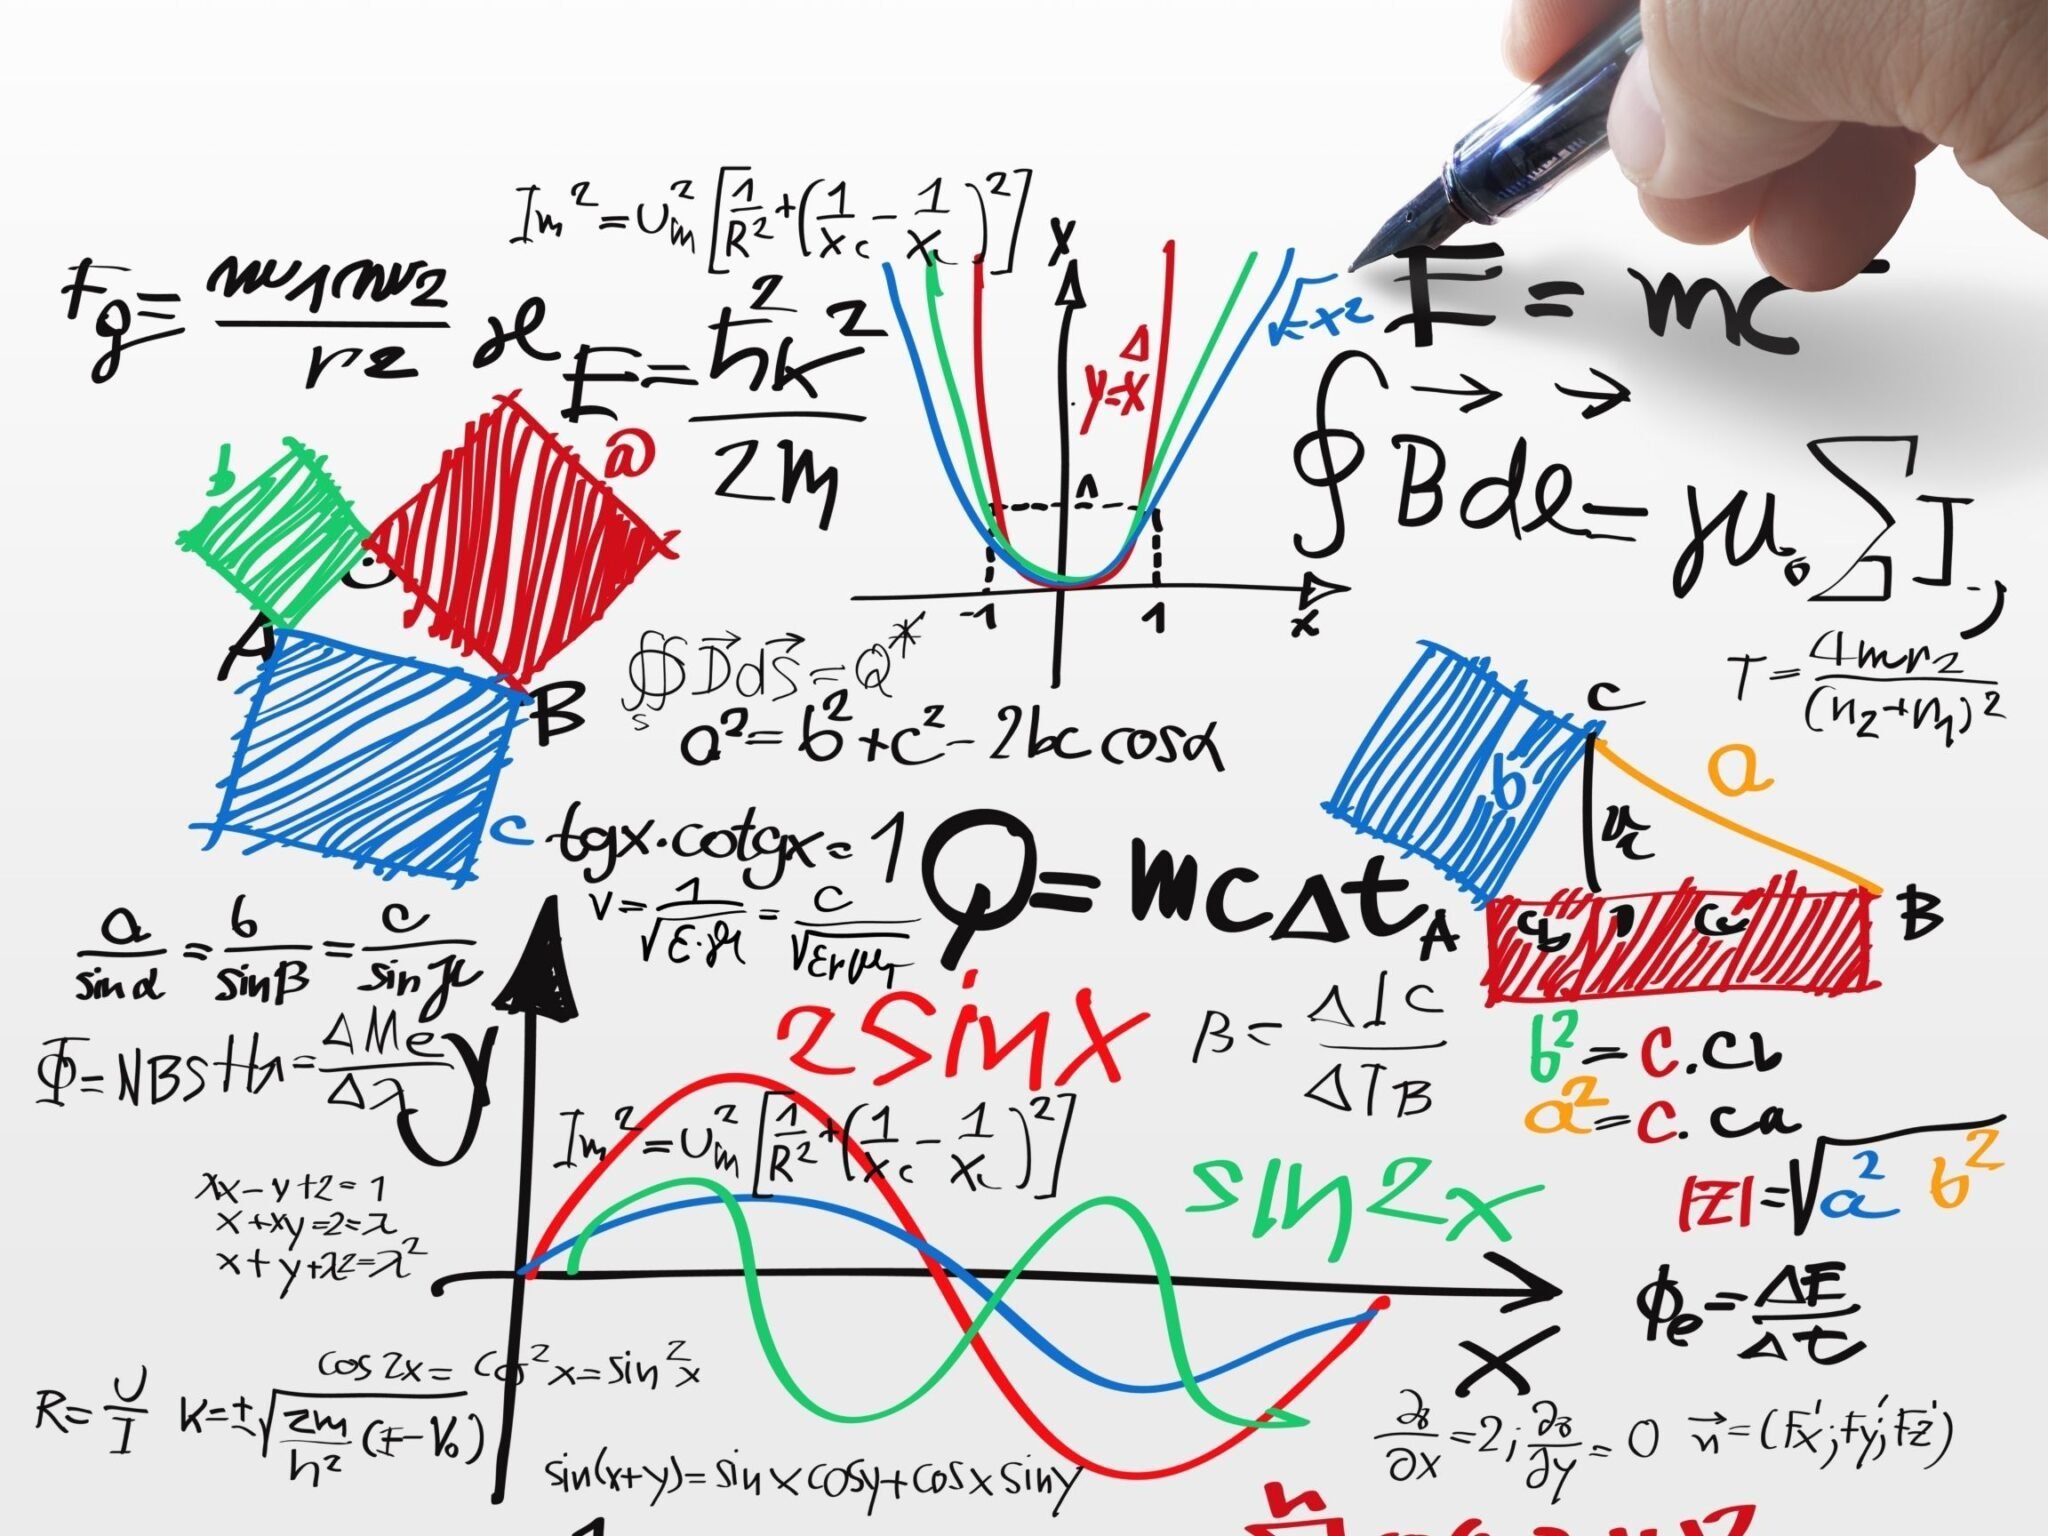 Im² = Um² [1/R² + (1/xc - 1/xL)²]
Fg = mv1mv2 / r2 æ
E = ħ²k² / 2m
x
y=x
√x²
E = mc
∮ B⃗ dℓ⃗ = μ₀ ∑ I
b
a
1
-1
1
x
A
B
c
∯ D⃗dS⃗ = Q*
s
a² = b² + c² - 2bc cosα
T = 4mr2 / (n2+n1)²
C
b
a
tgx·cotgx = 1
v = 1/√ε·μ = c/√εrμr
Q = mcΔt
A
B
cb
ca
a/sinα = b/sinβ = c/sin
2sinx
β = ΔIC / ΔTB
b² = c.cb
a² = c.ca
Φ = NBS = ΔMe / Δλ
y
Im² = Um² [1/R² + (1/xc - 1/xL)²]
sin2x
|Z| = √a² b²
xx-y+2=1
x+xy=2=λ
x+y+λ2=λ²
Φe = ΔE / Δt
x
cos2x = cos²x = sin²x
R = U/I
k = ±√2m/ħ² (E-V₀)
∂z/∂x = 2; ∂z/∂y = 0
n⃗ = (Fx'; Fy'; Fz')
sin(x+y) = sinxcosy + cosxsiny
n